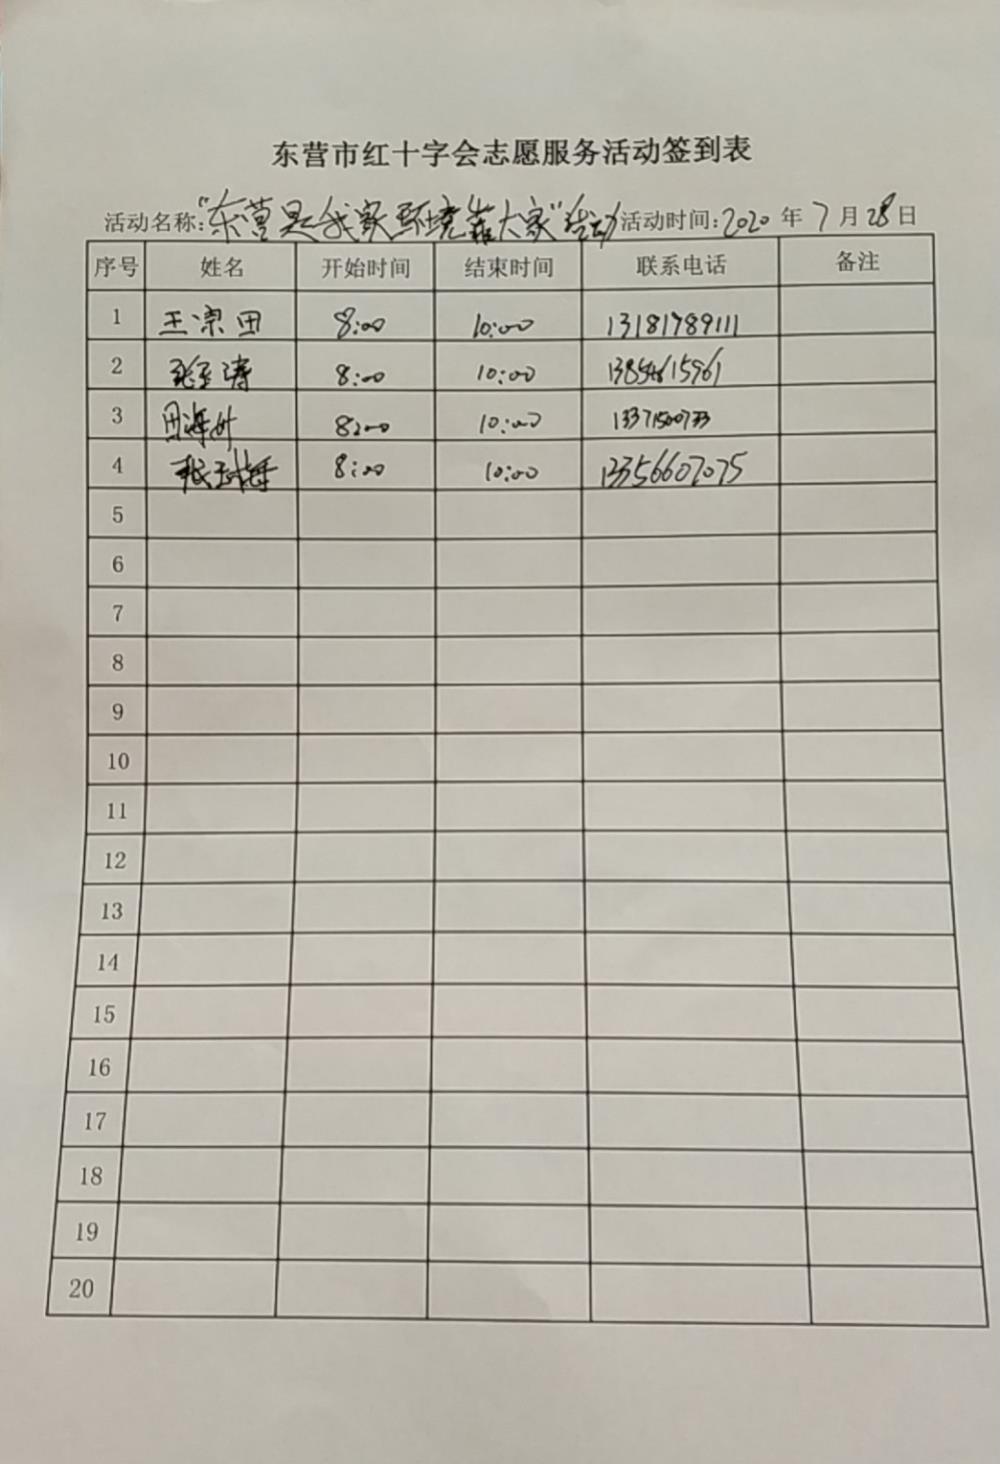 东营市红十字会志愿服务活动签到表
活动名称:“东营是我家环境靠大家”活动 活动时间:2020年7月28日
序号 姓名 开始时间 结束时间 联系电话 备注
1 王宗田 8:00 10:00 13181789111
2 8:00 10:00 13854615961
3 田海州 8:00 10:00 13371500733
4 张玉梅 8:00 10:00 13356607075
5
6
7
8
9
10
11
12
13
14
15
16
17
18
19
20